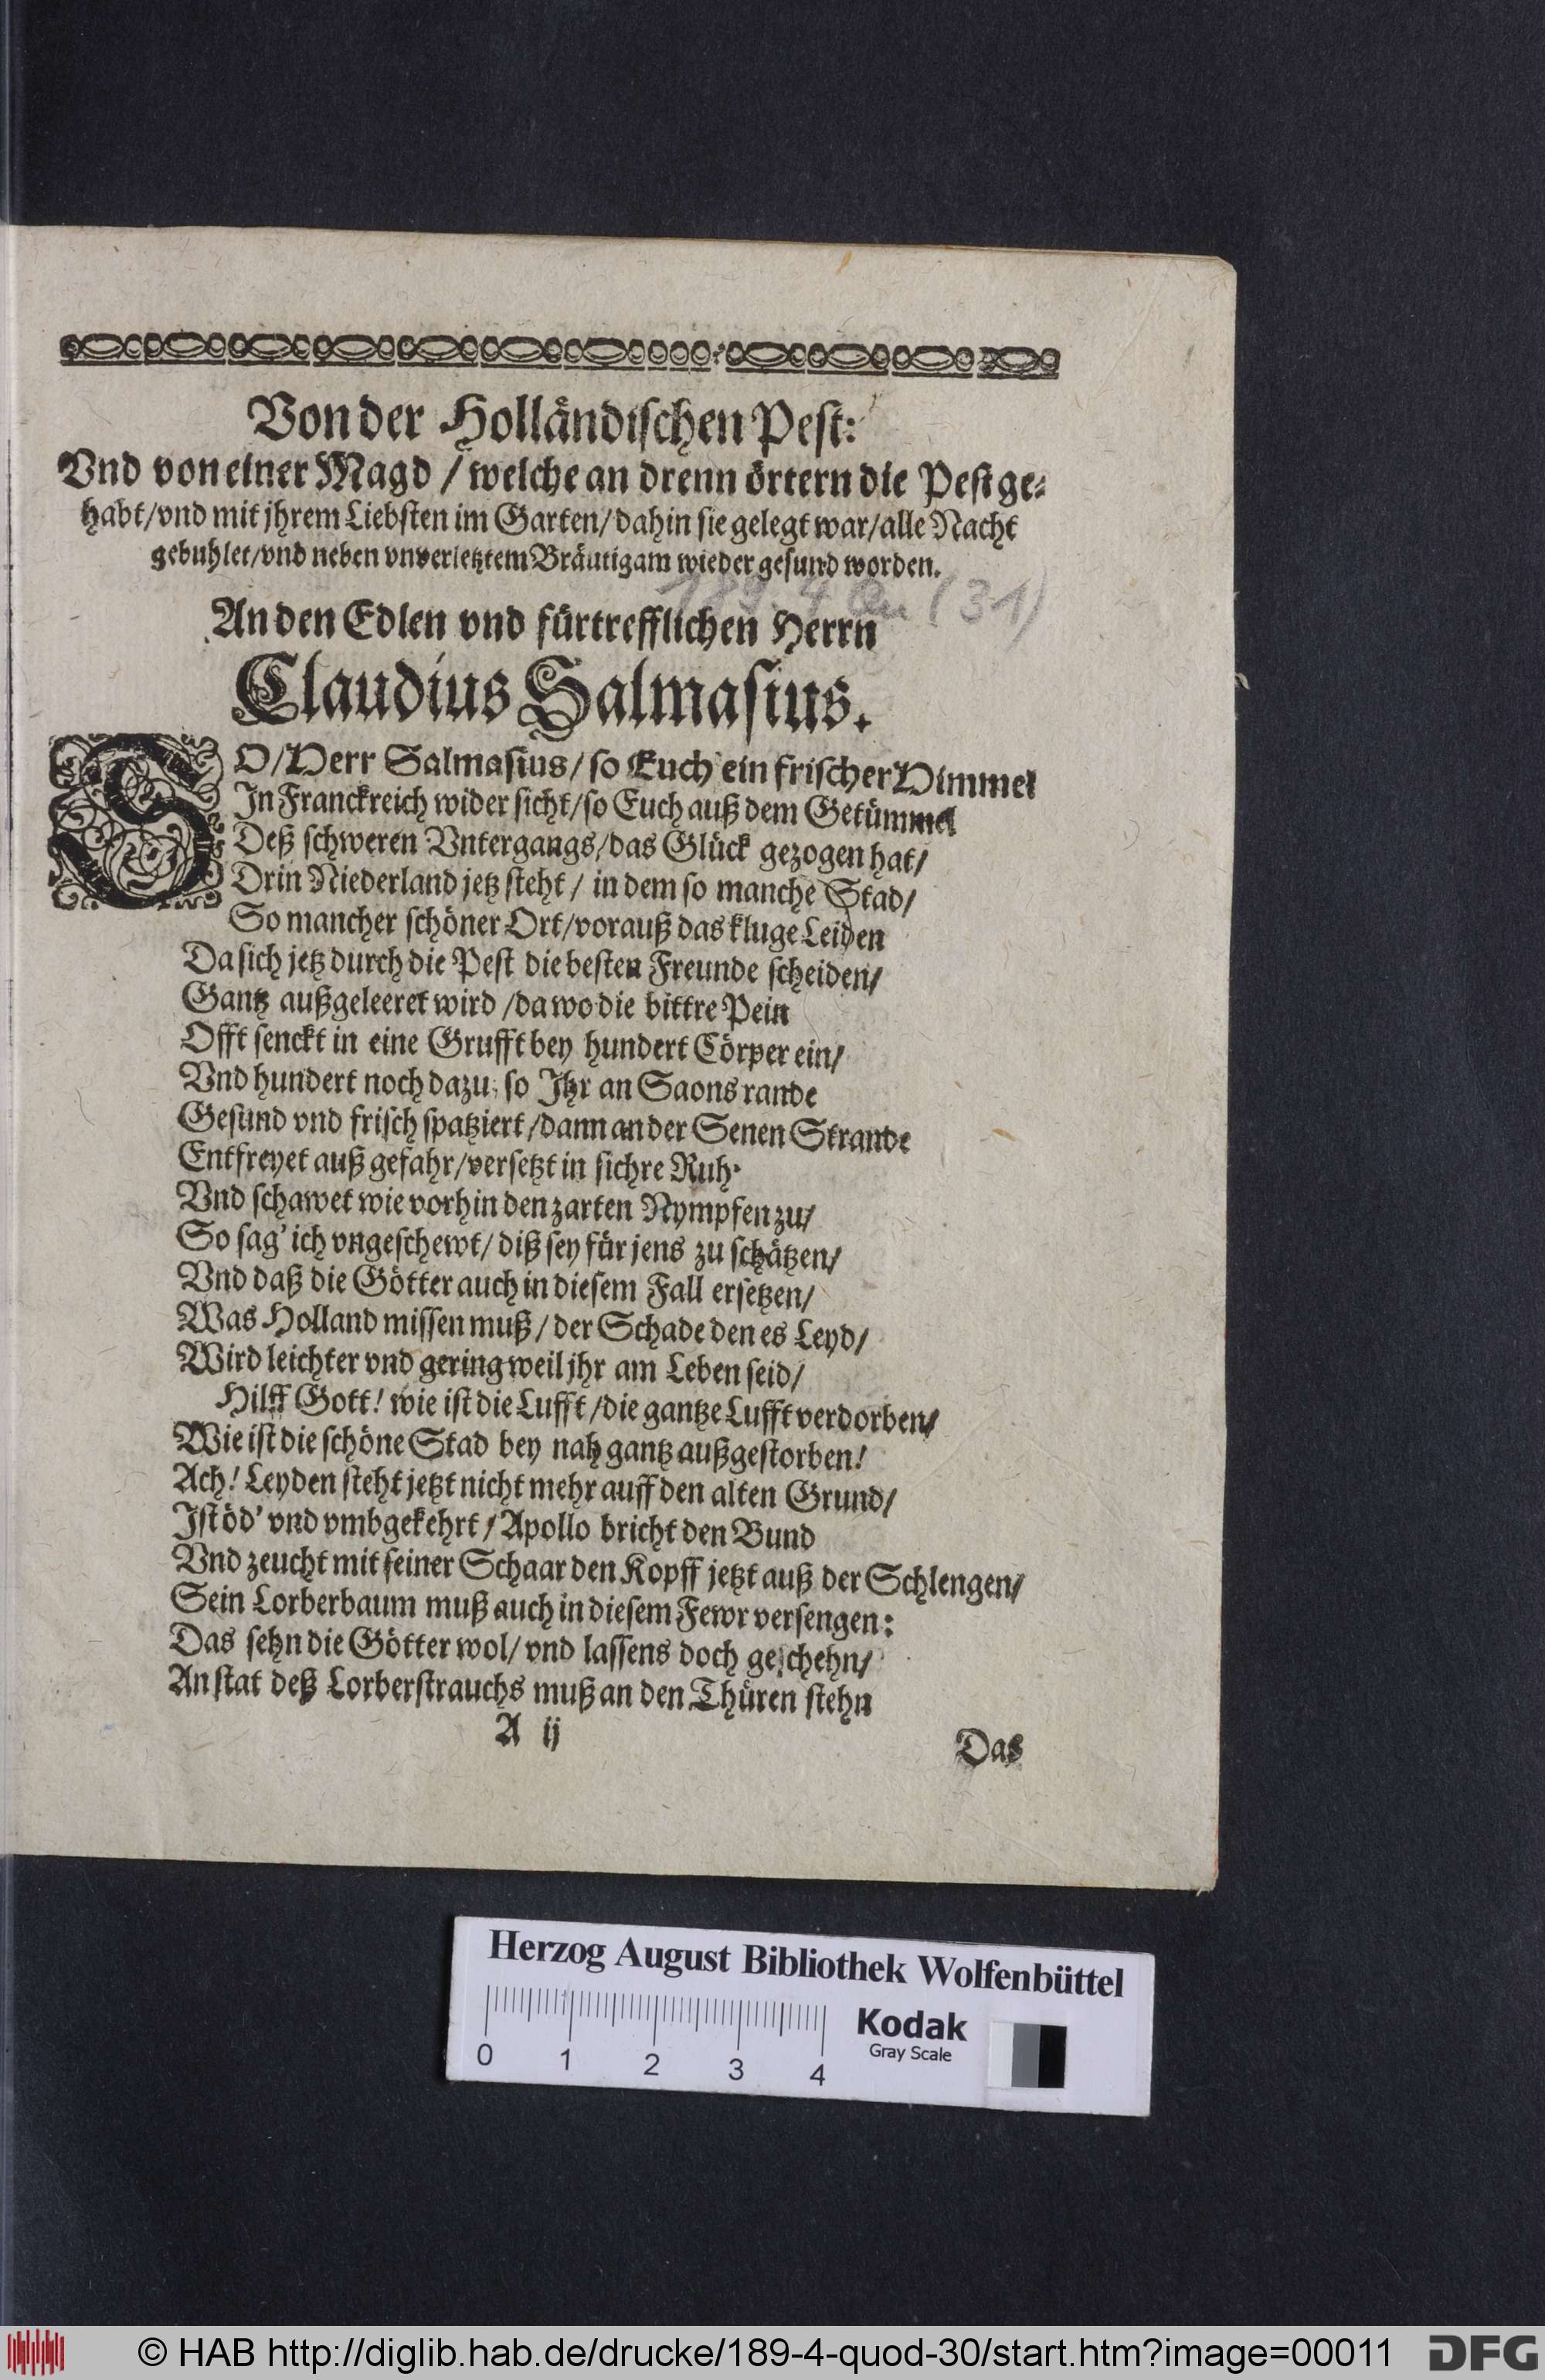 Von der Holländischen Pest:
Vnd von einer Magd / welche an dreyn örtern die Pest ge-
habt/vnd mit jhrem Liebsten im Garten/dahin sie gelegt war/alle Nacht
gebuhlet/vnd neben vnverletztem Bräutigam wieder gesund worden.
189. 4 Qu (31)
An den Edlen vnd fürtrefflichen Herrn
Claudius Salmasius.
SO/Herr Salmasius/so Euch ein frischer Himmel
In Franckreich wider sicht/so Euch auß dem Getümmel
Deß schweren Vntergangs/das Glück gezogen hat/
Drin Niederland jetz steht / in dem so manche Stad/
So mancher schöner Ort/vorauß das kluge Leiden
Da sich jetz durch die Pest die besten Freunde scheiden/
Gantz außgeleeret wird /da wo die bittre Pein
Offt senckt in eine Grufft bey hundert Cörper ein/
Vnd hundert noch dazu, so Jhr an Saons rande
Gesund vnd frisch spatziert/dann an der Senen Strande
Entfreyet auß gefahr/versetzt in sichre Ruh.
Vnd schawet wie vorhin den zarten Nympfen zu/
So sag' ich vngeschewt/ diß sey für jens zu schätzen/
Vnd daß die Götter auch in diesem Fall ersetzen/
Was Holland missen muß / der Schade den es Leyd/
Wird leichter vnd gering weil jhr am Leben seid/
Hilff Gott! wie ist die Lufft /die gantze Lufft verdorben/
Wie ist die schöne Stad bey nah gantz außgestorben!
Ach! Leyden steht jetzt nicht mehr auff den alten Grund/
Ist öd' vnd vmbgekehrt / Apollo bricht den Bund
Vnd zeucht mit seiner Schaar den Kopff jetzt auß der Schlengen/
Sein Lorberbaum muß auch in diesem Fewr versengen:
Das sehn die Götter wol/ vnd lassens doch geschehn/
An stat deß Lorberstrauchs muß an den Thüren stehn
A ij
Das
Herzog August Bibliothek Wolfenbüttel
0 1 2 3 4
Kodak
Gray Scale
© HAB http://diglib.hab.de/drucke/189-4-quod-30/start.htm?image=00011
DFG